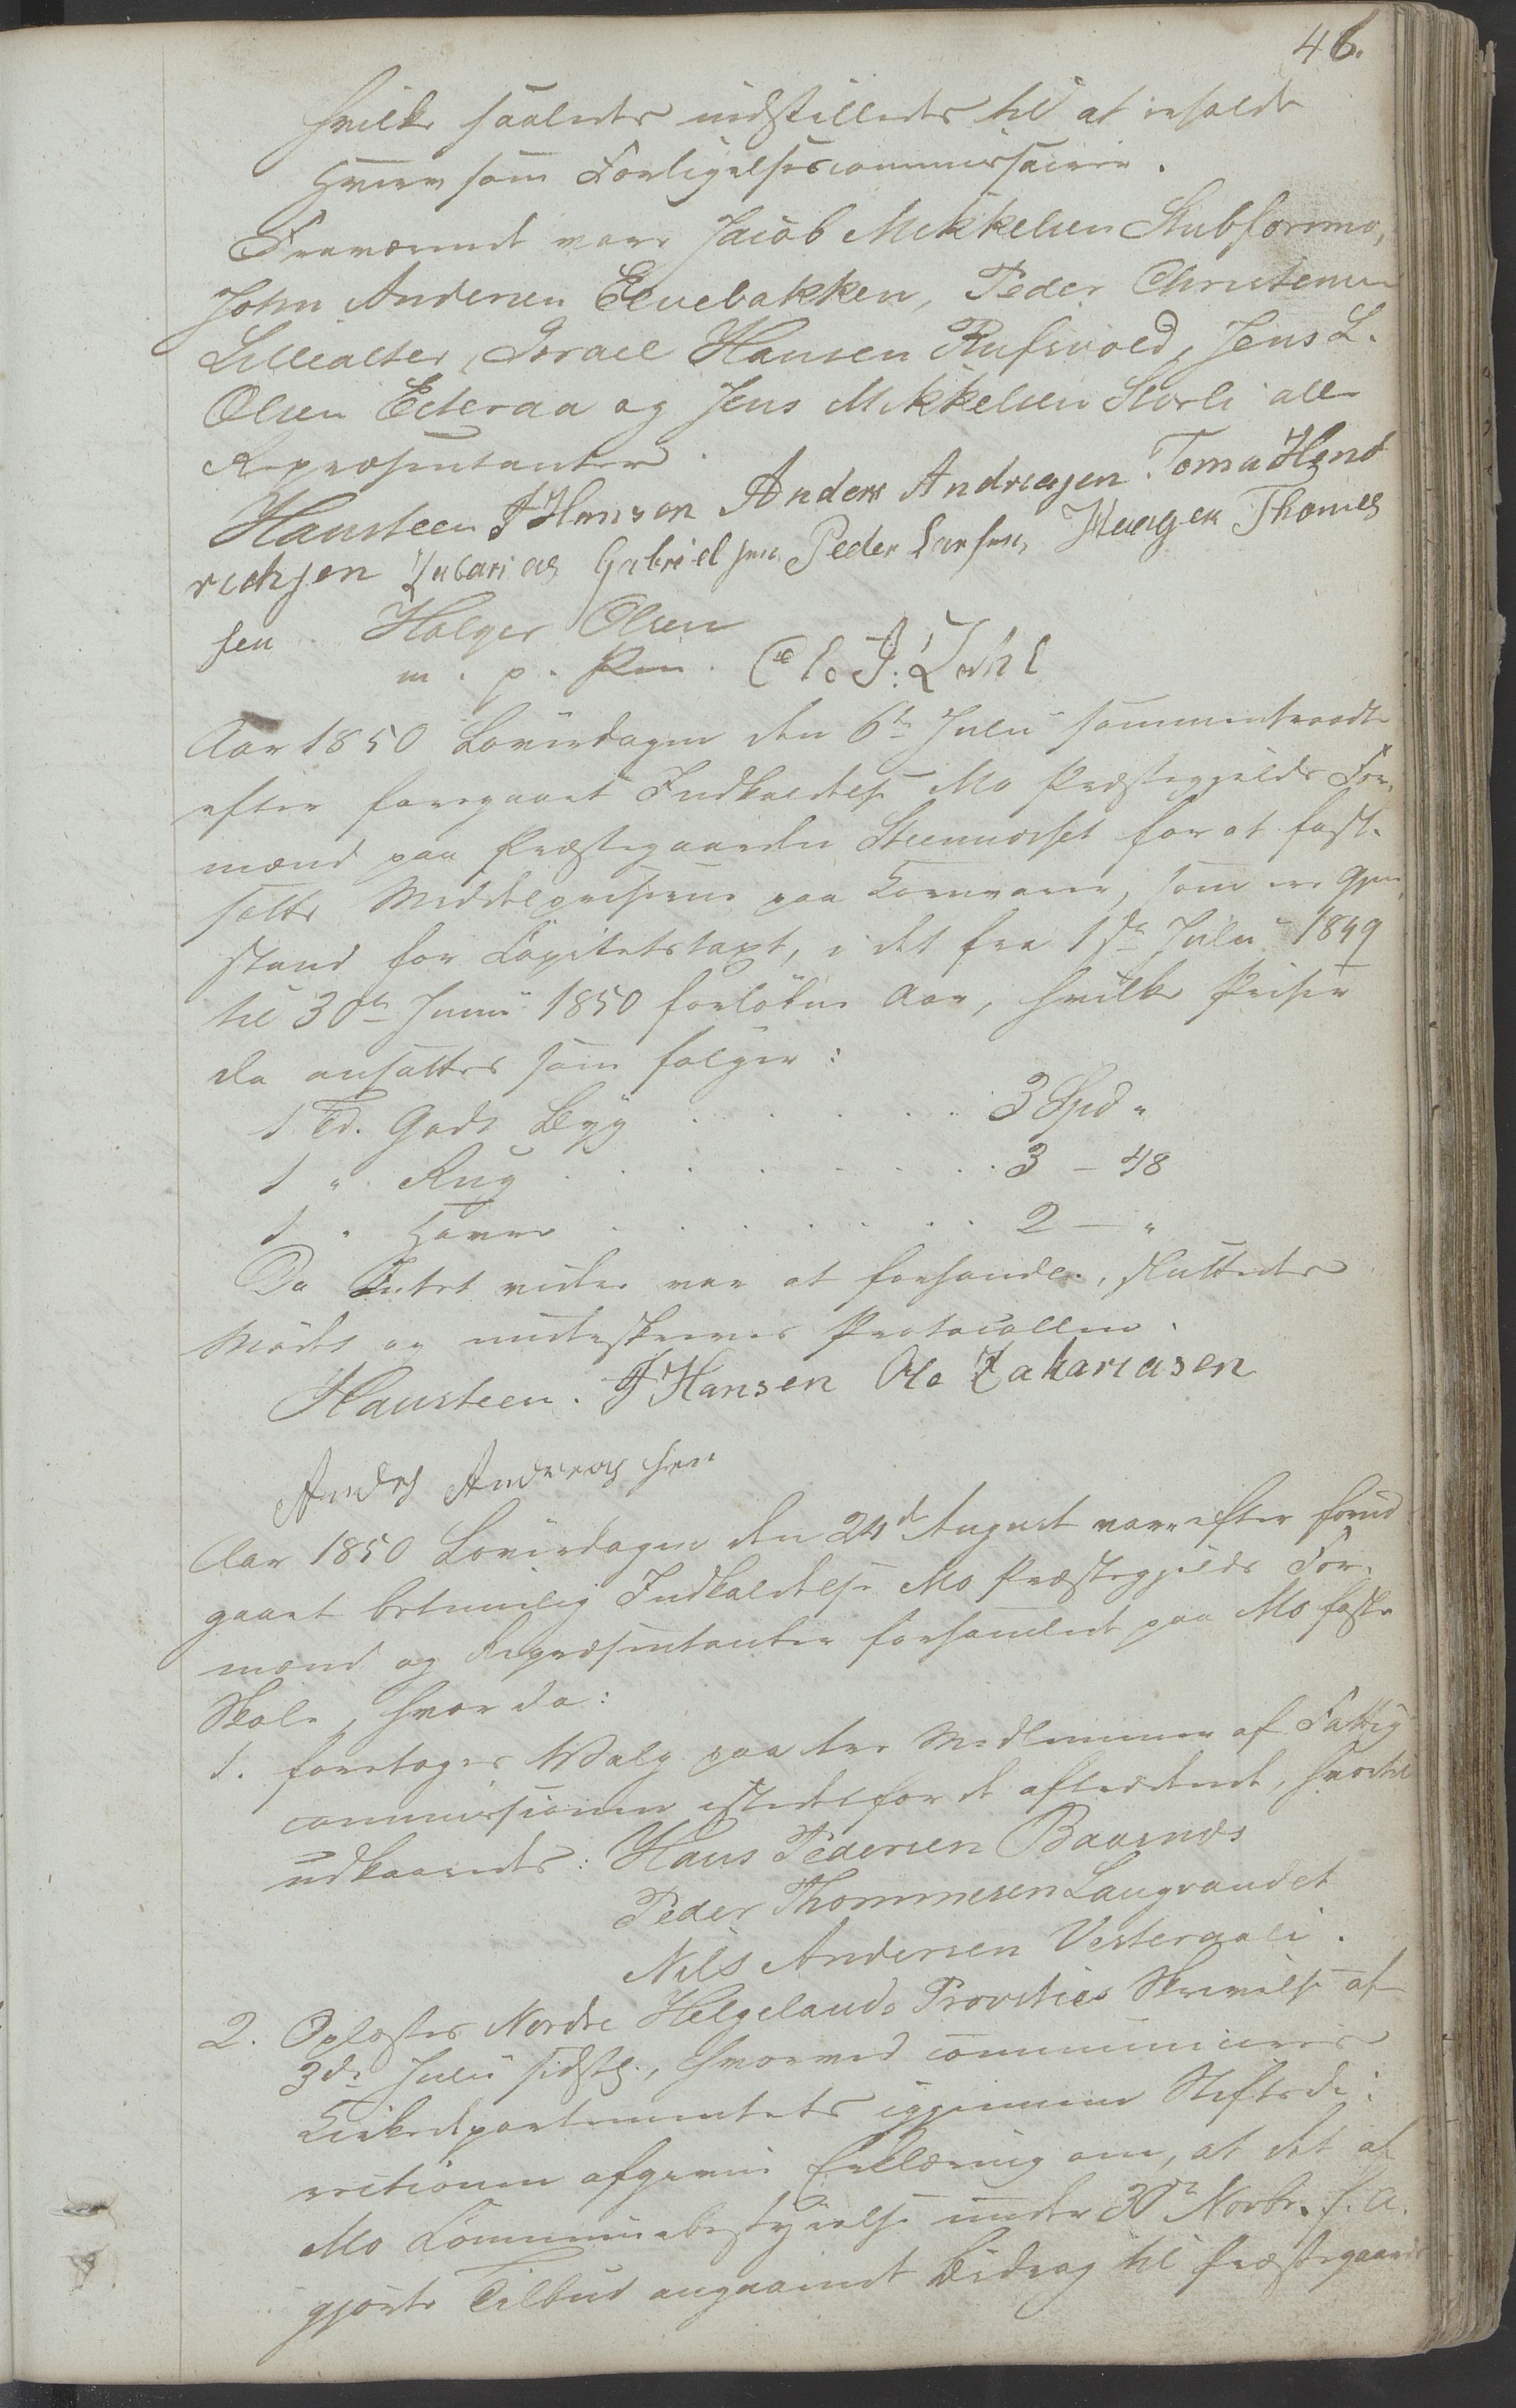 46.
hvilke saaledes indstilledes til at erholde
Hverv som Forligelsescommissairer.
Fraværende vare Jacob Mikkelsen Stubformo,
John Andersen Elvebakken, Peder Christensen
Lillealter, Israel Hansen Rufsvold, Jens L.
Olsen Ederaa og Jens Mikkelsen Storli alle
Repræsentanter.
Hansteen F Hansen Anders Andreasen. Tomas Hend
richsen Zakarias Gabrielsen Peder Larsen, Haagen Thomes
sen Holger Olsen
m. p. Pen. Ole J: Dahl
Aar 1850 Løverdagen den 6te Juli sammentraadte
efter foregaaet Indkaldelse Mo Præstegjelds For-
mænd paa Præstegaarden Steennæset for at fast-
sætte Middelpriserne paa Kornvarer, som ere Gjen-
stand for Capitelstaxt, i det fra 1ste Juli 1849
til 30te Juni 1850 forløbne Aar, hvilke Priser
da ansattes som følger:
1 Td. Godt Byg . . . . . . 3 Spd "
1 " Rug . . . . . . . 3 - 48
1 " Havre . . . . . . . 2 - "
Da Intet videre var at forhandle, sluttedes
Mødet og underskreves Protocollen.
Hansteen. F Hansen Ole Zakariasen
Anders Andreassen
Aar 1850 Løverdagen den 24de August vare efter forud
gaaet betimelig Indkaldelse Mo Præstegjelds For-
mænd og Repræsentanter forsamlede paa Mo faste
Skole, hvor da:
1. foretoges Valg paa tre Medlemmer af Fattig
commissionen istedetfor de aftrædende, hvortil
udkaaredes: Hans Pedersen Baasnæs
Peder Thommesen Langvandet
Nils Andersen Vesterali.
2. Oplæstes Nordre Helgelands Provsties Skrivelse af
3die Juli sidstl., hvorved communiceres
Kirkedepartementets igjennem Stiftsdi-
rectionen afgivne Erklæring om, at det af
Mo Communebestyrelse under 30te Novbr. f. A.
gjorte Tilbud angaaende Bidrag til Præstegaards